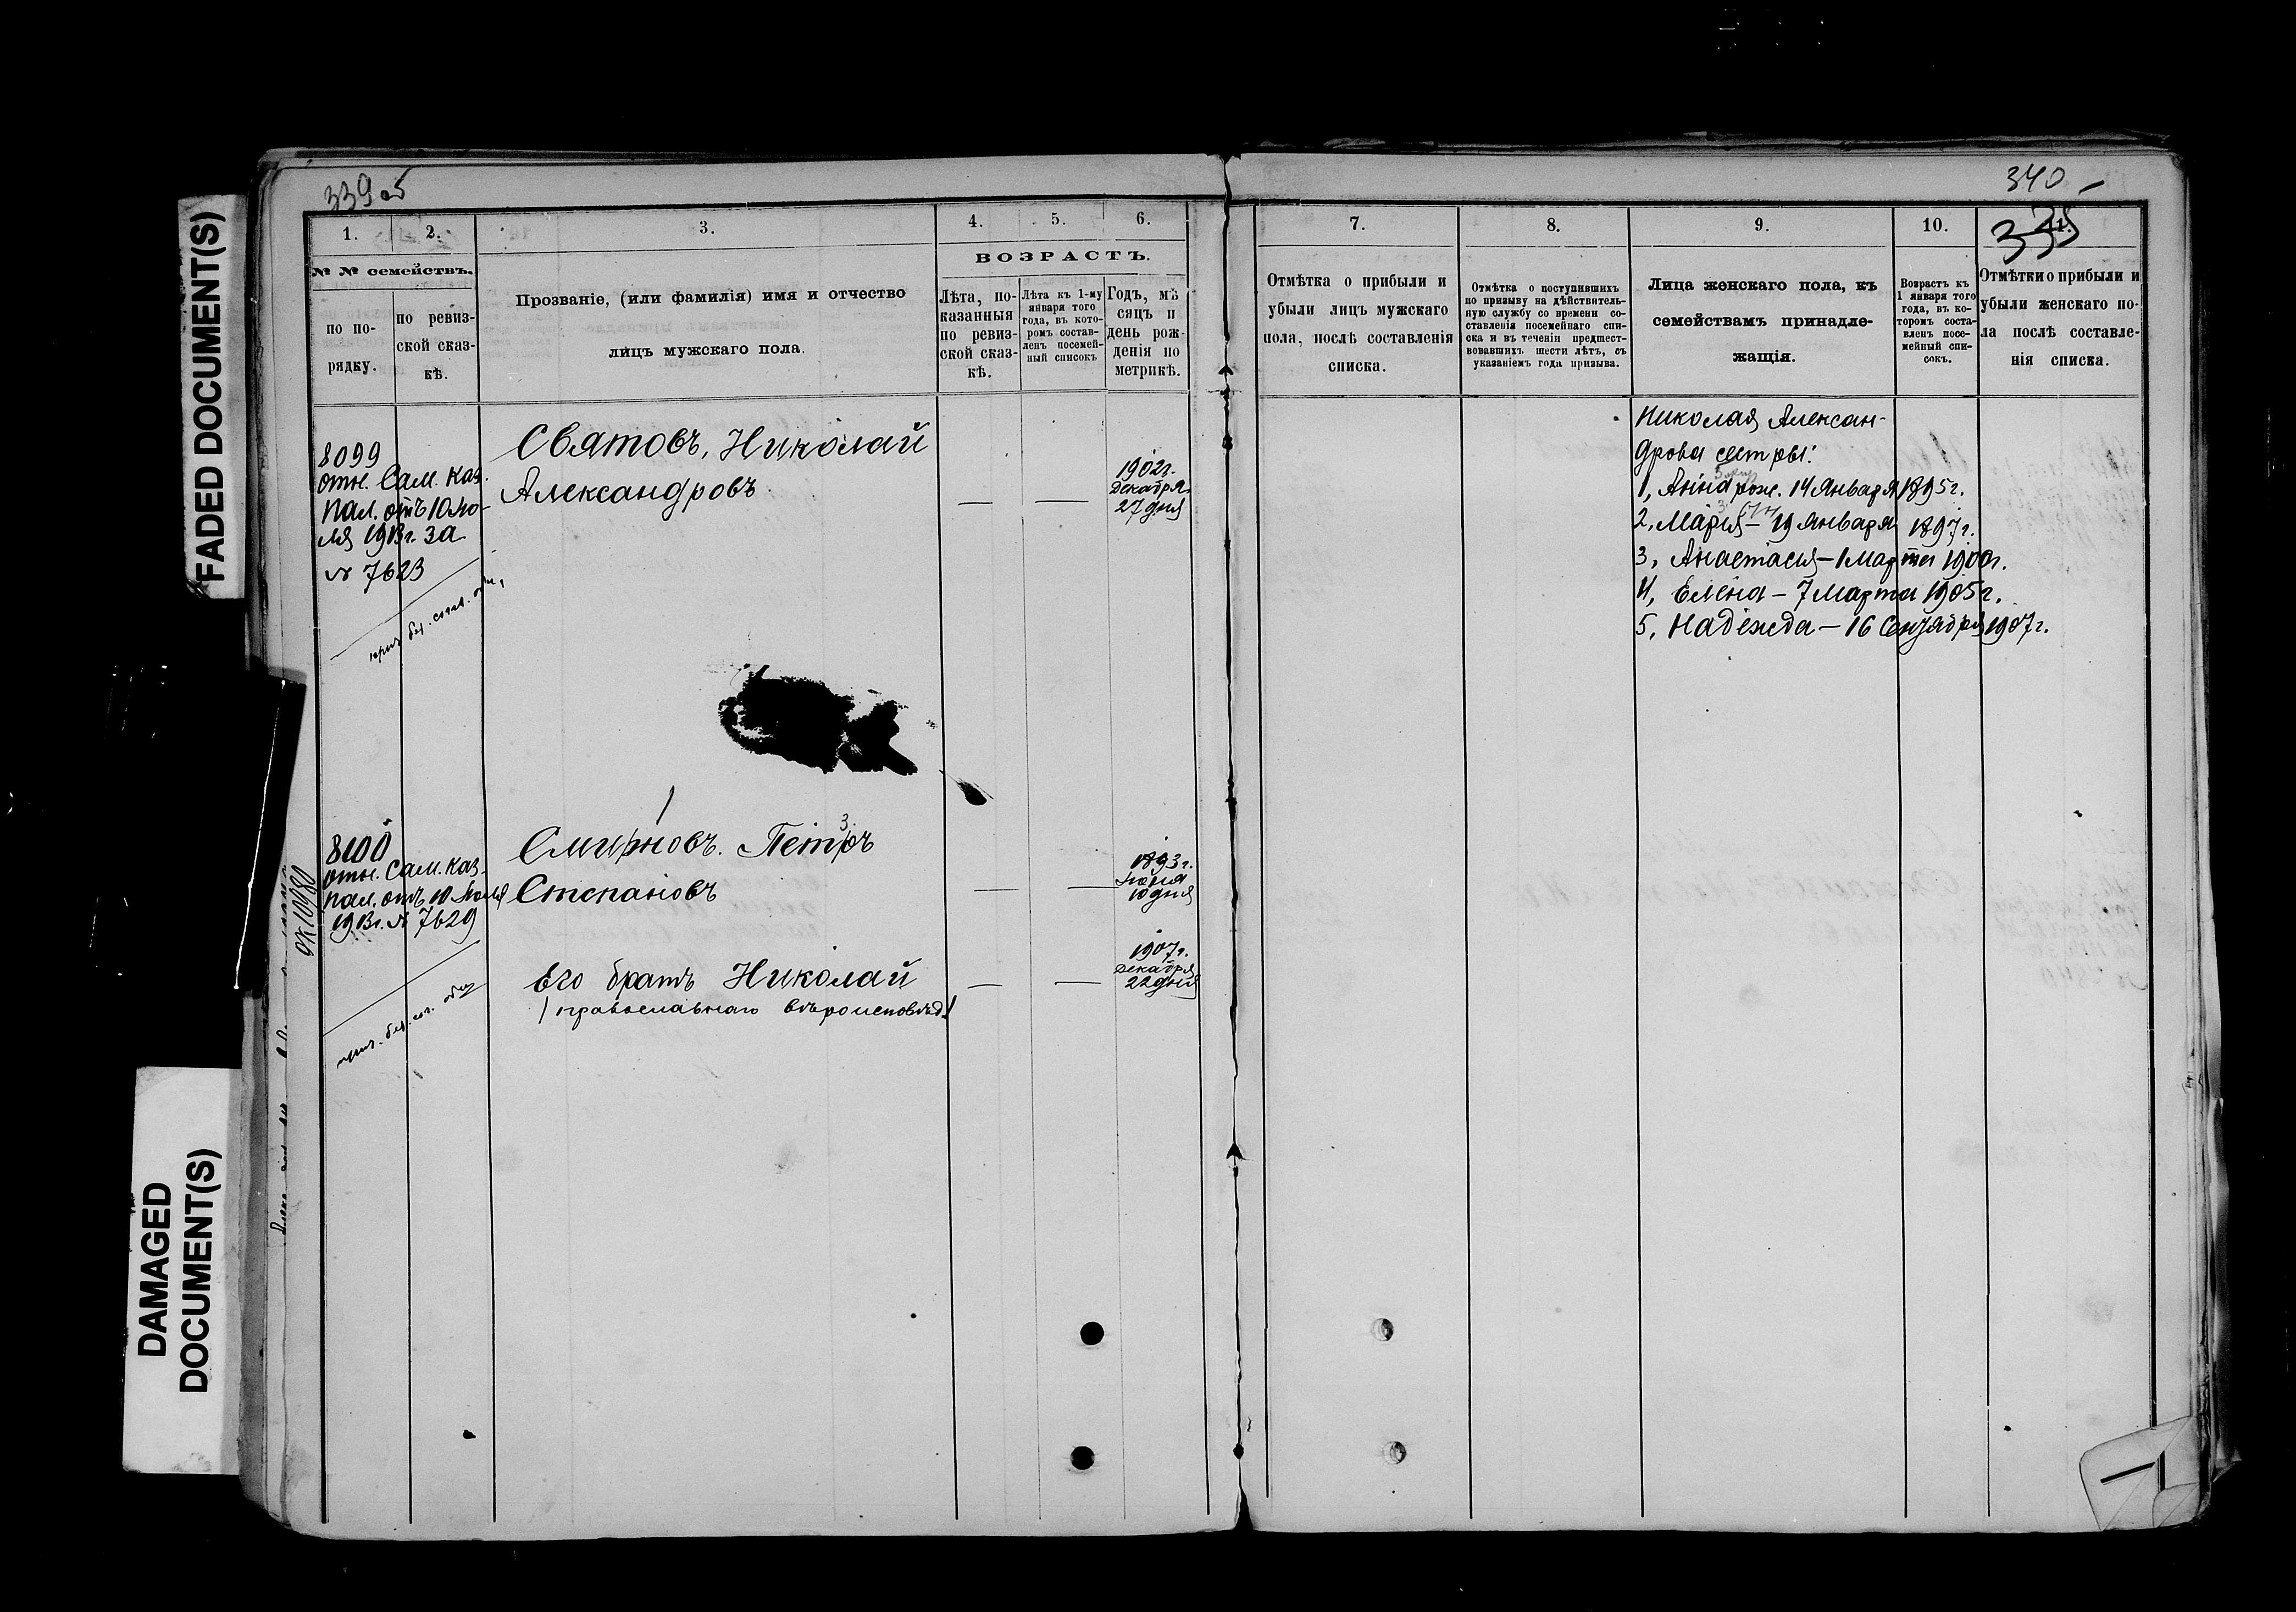 FADED DOCUMENT(S)
DAMAGED
DOCUMENT(S)
339 об
1.
2.
3.
4.
5.
6.
№ № семействъ.
по по-
рядку.
по ревиз-
ской сказ-
кѣ.
Прозваніе, (или фамилія) имя и отчество
лицъ мужскаго пола.
ВОЗРАСТЪ.
Лѣта, по-
казанныя
по ревиз-
ской сказ-
кѣ.
Лѣта къ 1-му
января того
года, въ кото-
ромъ состав-
ленъ посемей-
ный списокъ
Годъ, мѣ
сяцъ и
день рож-
денія по
метрикѣ.
8099
отн. Сам. каз.
пал. отъ 10 Ию-
ля 1913 г. за
№ 7623
Святовъ, Николай
Александровъ.
— —
1902г.
Декабря
27 дня
8100
отн. Сам. каз.
пал. отъ 10 Июля
1913г. № 7629
Смирновъ. Петръ
3.
Степановъ
— —
1893г.
10 дня
Его братъ Николай
/православнаго вѣроисповѣд./
— —
1907г.
Декабря
22 дня
340
335
7.
8.
9.
10.
11.
Отмѣтка о прибыли и
убыли лицъ мужскаго
пола, послѣ составленія
списка.
Отмѣтка о поступившихъ
по призыву на дѣйствитель-
ную службу со времени со-
ставленія посемейнаго спи-
ска и въ теченіи предшест-
вовавшихъ шести лѣтъ, съ
указаніемъ года призыва.
Лица женскаго пола, къ
семействамъ принадле-
жащія.
Возрастъ къ
1 января того
года, въ ко-
торомъ соста-
вленъ посе-
мейный спи-
сокъ.
Отмѣтки о прибыли и
убыли женскаго по-
ла послѣ составле-
нія списка.
Николая Алексан-
дрова сестры:
1, Анна рож. 14 Января 1895г.
2, Марія — 19 Января 1897г.
3, Анастасія — 1 Марта 1900г.
4, Елена — 7 Марта 1905г.
5, Надежда — 16 Сентября 1907г.